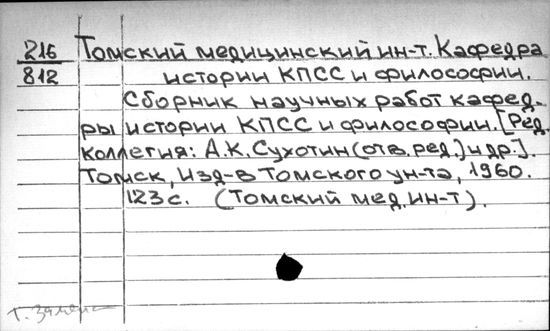 216 Томский медицинский ин-т. Кафедра
812 истории КПСС и философии.
Сборник научных работ кафед-
ры истории КПСС и философии. [Ред.
коллегия: А.К. Сухотин (отв. ред.) и др.].
Томск, Изд-в Томского ун-та, 1960.
123 с. (Томский мед. ин-т).